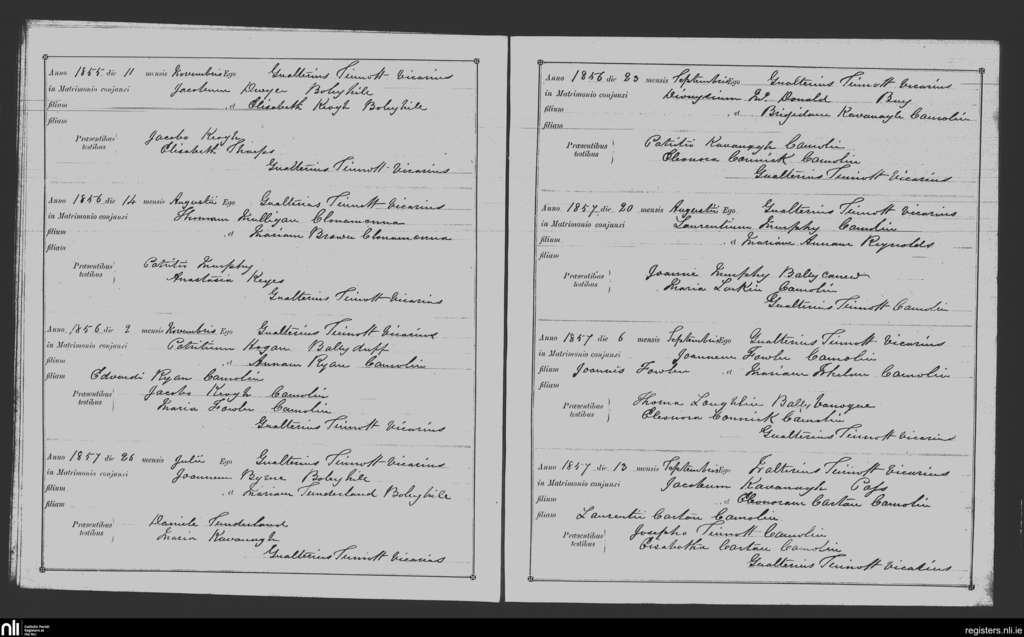 Anno 1855 die 11 mensis Novembris Ego Gualterius Sinnott Vicarius
in Matrimonio conjunxi Jacobum Dwyer Boleyhile
filium et Elisabeth Keogh Boleyhile
filiam
Præsentibus testibus Jacobo Keogh
Elisabeth Tharps
Gualterius Sinnott Vicarius
Anno 1856 die 14 mensis Augustii Ego Gualterius Sinnott Vicarius
in Matrimonio conjunxi Thomam Mulligan Clonamonna
filium et Mariam Brown Clonamonna
filiam
Præsentibus testibus Patritio Murphy
Anastasia Keyes
Gualterius Sinnott Vicarius
Anno 1856 die 2 mensis Novembris Ego Gualterius Sinnott Vicarius
in Matrimonio conjunxi Patritium Hogan Ballyduff
filium et Annam Ryan Camolin
filiam Edvardi Ryan Camolin
Præsentibus testibus Jacobo Keogh Camolin
Maria Fowler Camolin
Gualterius Sinnott Vicarius
Anno 1857 die 26 mensis Julii Ego Gualterius Sinnott Vicarius
in Matrimonio conjunxi Joannem Byrne Boleyhile
filium et Mariam Sunderland Boleyhile
filiam
Præsentibus testibus Daniele Sunderland
Maria Kavanagh
Gualterius Sinnott Vicarius
Anno 1856 die 23 mensis Septembris Ego Gualterius Sinnott Vicarius
in Matrimonio conjunxi Dionysium Mc Donald
filium et Brigidam Kavanagh Camolin
filiam
Præsentibus testibus Patritio Kavanagh Camolin
Eleonora Connick Camolin
Gualterius Sinnott Vicarius
Anno 1857 die 20 mensis Augustii Ego Gualterius Sinnott Vicarius
in Matrimonio conjunxi Laurentium Murphy Camolin
filium et Mariam Annam Reynolds
filiam
Præsentibus testibus Joanne Murphy Ballycanew
Maria Larkin Camolin
Gualterius Sinnott Camolin
Anno 1857 die 6 mensis Septembris Ego Gualterius Sinnott Vicarius
in Matrimonio conjunxi Joannem Fowler Camolin
filium Joannis Fowler et Mariam Whelan Camolin
filiam
Præsentibus testibus Thoma Loughlin Ballyvanogue
Eleonora Connick Camolin
Gualterius Sinnott Vicarius
Anno 1857 die 13 mensis Septembris Ego Walterius Sinnott Vicarius
in Matrimonio conjunxi Jacobum Kavanagh Pass
filium et Eleonoram Cartan Camolin
filiam Laurentii Cartan Camolin
Præsentibus testibus Josepho Sinnott Camolin
Elisabetha Cartan Camolin
Gualterius Sinnott Vicarius
nli Catholic Parish Registers at the NLI
registers.nli.ie